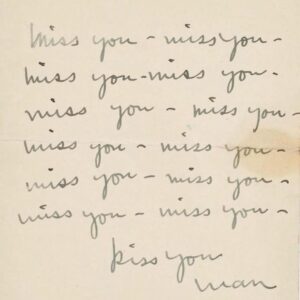 miss you - miss you -
miss you - miss you -
miss you - miss you -
miss you - miss you -
miss you - miss you -
miss you - miss you -
kiss you
man